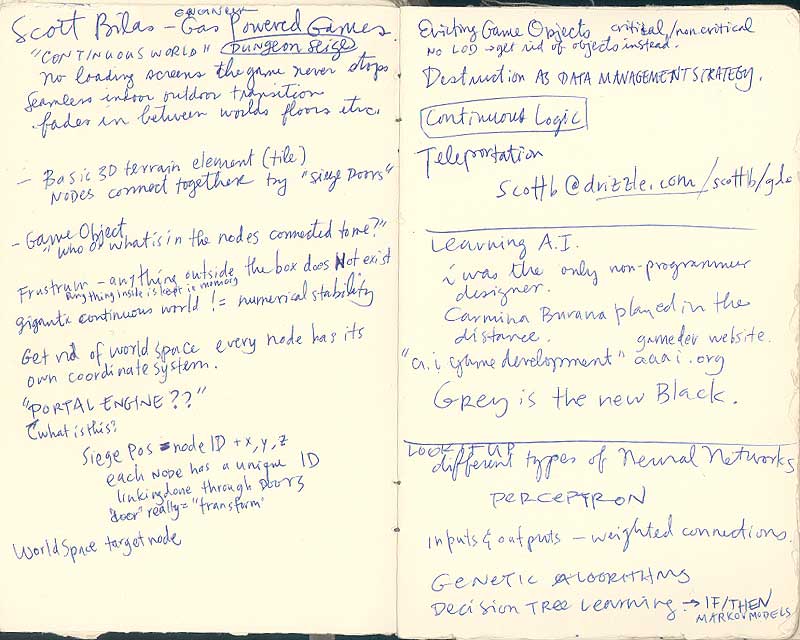 Scott Bilas – Gas Powered Games.
engineer
"CONTINUOUS WORLD" DUNGEON SEIGE
no loading screens the game never stops
Seamless indoor outdoor transition
fades in between worlds floors etc.
– Basic 3D terrain element (tile)
NODES connect together by "SIEGE DOORS"
– Game Object
"who or what is in the nodes connected to me?"
Frustrum – anything outside the box does Not exist
anything inside is kept in memory
gigantx continuous world != numerical stability
Get rid of world space every node has its
own coordinate system.
"PORTAL ENGINE??"
what is this?
Siege Pos = node ID + x, y, z
each NODE has a unique ID
linking done through DOORS
"door" really = "transform"
World Space target node
Evicting Game Objects critical/non critical
NO LOD → get rid of objects instead.
DESTRUCTION AS DATA MANAGEMENT STRATEGY.
Continuous Logic
Teleportation
scottb@drizzle.com/scottb/gdc
Learning A.I.
i was the only non-programmer
designer.
Carmina Burana played in the
distance.
gamedev website.
"a.i game development" aaai.org
Grey is the new Black.
LOOK IT UP
different types of Neural Networks
PERCEPTRON
inputs & outputs – weighted connections.
GENETIC ALGORITHMS
DECISION TREE LEARNING → IF/THEN
MARKOV MODELS